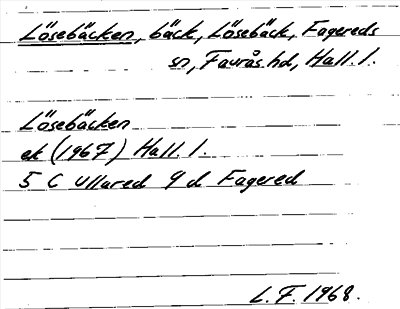 Lösebäcken, bäck, Lösebäck, Fagereds
sn, Faurås hd, Hall. l.
Lösebäcken
ek (1967) Hall. l.
5 C Ullared 9 d Fagered
L. F. 1968.